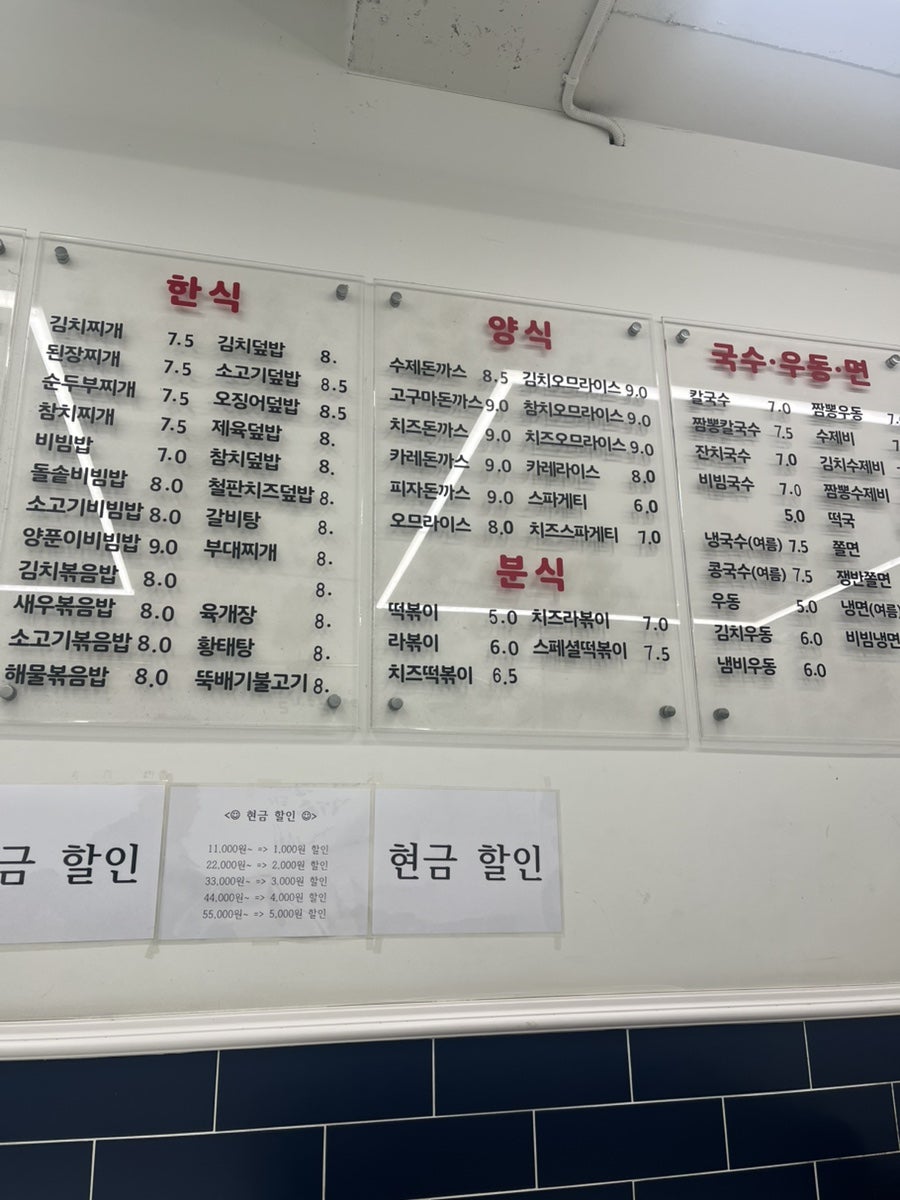 한식
김치찌개 7.5 김치덮밥 8.
된장찌개 7.5 소고기덮밥 8.5
순두부찌개 7.5 오징어덮밥 8.5
참치찌개 7.5 제육덮밥 8.
비빔밥 7.0 참치덮밥 8.
돌솥비빔밥 8.0 철판치즈덮밥 8.
소고기비빔밥 8.0 갈비탕 8.
양푼이비빔밥 9.0 부대찌개 8.
김치볶음밥 8.0 8.
새우볶음밥 8.0 육개장 8.
소고기볶음밥 8.0 황태탕 8.
해물볶음밥 8.0 뚝배기불고기 8.
양식
수제돈까스 8.5 김치오므라이스 9.0
고구마돈까스 9.0 참치오므라이스 9.0
치즈돈까스 9.0 치즈오므라이스 9.0
카레돈까스 9.0 카레라이스 8.0
피자돈까스 9.0 스파게티 6.0
오므라이스 8.0 치즈스파게티 7.0
분식
떡볶이 5.0 치즈라볶이 7.0
라볶이 6.0 스페셜떡볶이 7.5
치즈떡볶이 6.5
국수·우동·면
칼국수 7.0 짬뽕우동
짬뽕칼국수 7.5 수제비
잔치국수 7.0 김치수제비
비빔국수 7.0 짬뽕수제비
5.0 떡국
냉국수(여름) 7.5 쫄면
콩국수(여름) 7.5 쟁반쫄면
우동 5.0 냉면(여름)
김치우동 6.0 비빔냉면
냄비우동 6.0
금 할인
<☺ 현금 할인 ☺>
11,000원~ => 1,000원 할인
22,000원~ => 2,000원 할인
33,000원~ => 3,000원 할인
44,000원~ => 4,000원 할인
55,000원~ => 5,000원 할인
현금 할인